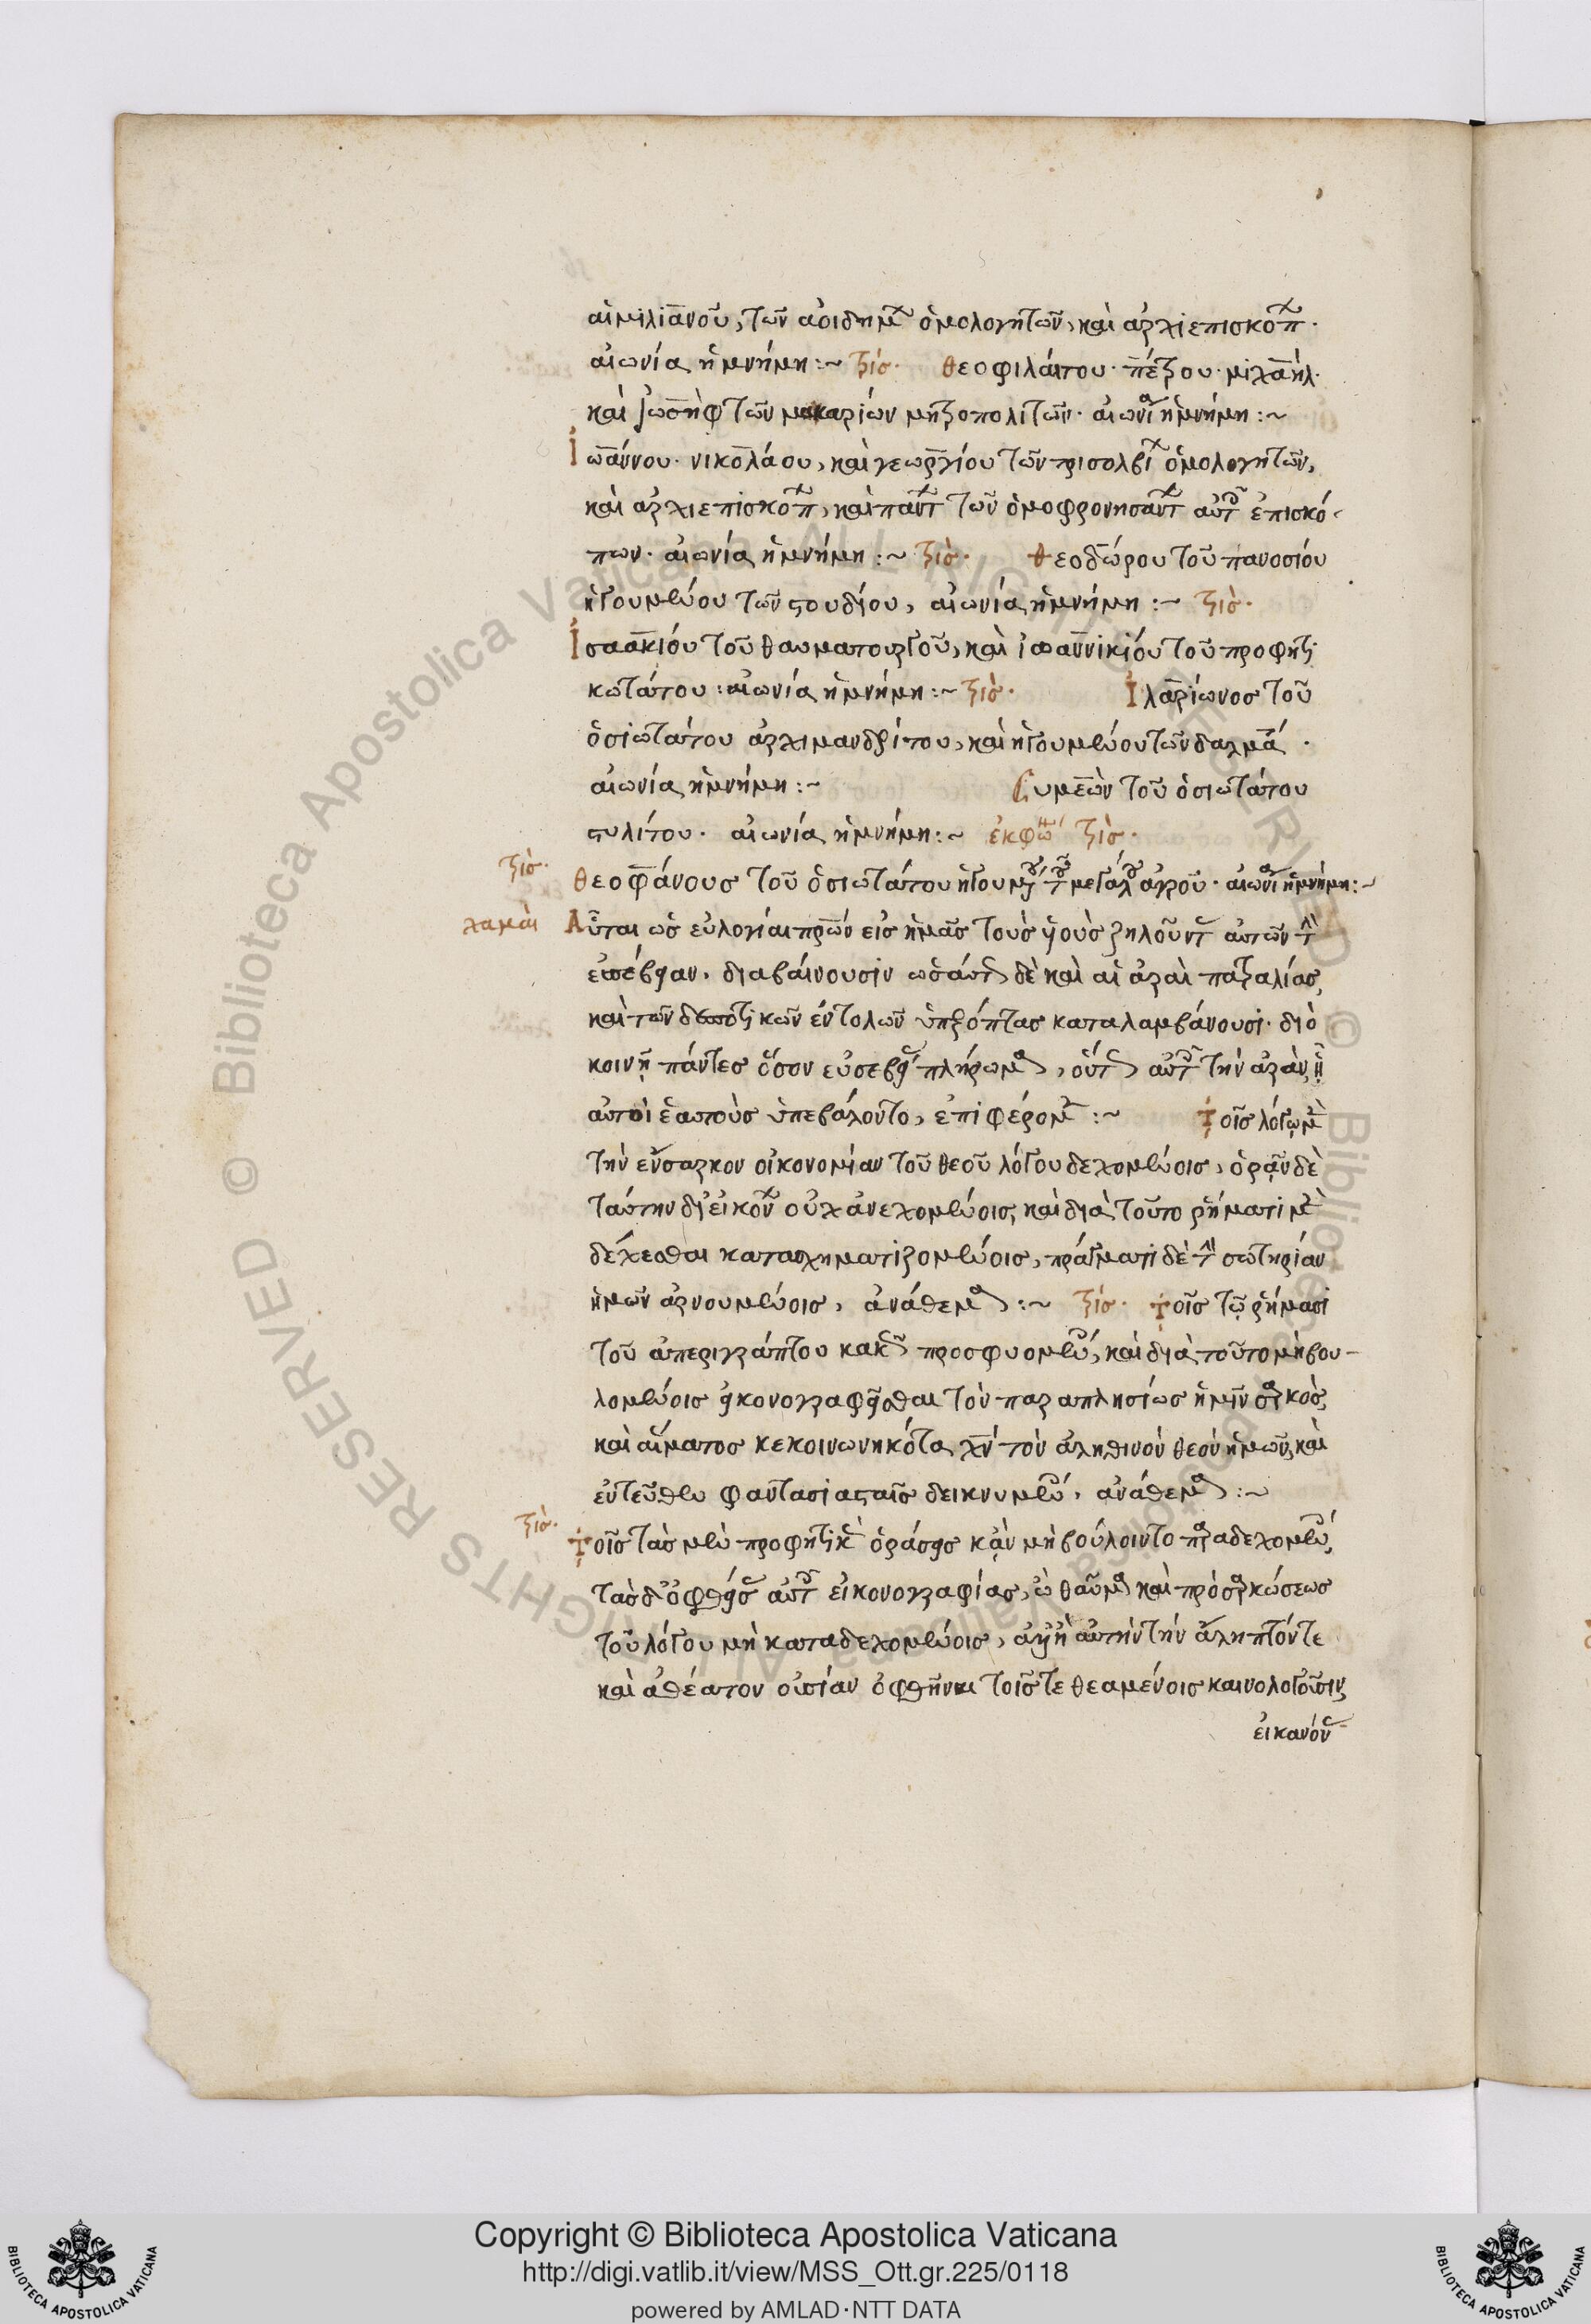 αἰμιλιανοῦ, τῶν ἀοιδήμων ὁμολογητῶν, καὶ ἀρχιεπισκόπων·
αἰωνία ἡ μνήμη :~ τρίς· θεοφιλάκτου· πέτρου· μιχαήλ·
καὶ ἰωσὴφ τῶν μακαρίων μητροπολιτῶν· αἰωνία ἡ μνήμη :~
Ἰωάννου· νικολάου, καὶ γεωργίου τῶν τρισολβίων ὁμολογητῶν,
καὶ ἀρχιεπισκόπων, καὶ πάντων τῶν ὁμοφρονησάντων αὐτοῖς ἐπισκό-
πων· αἰωνία ἡ μνήμη :~ τρὶς· θεοδώρου τοῦ πανοσίου
ἡγουμένου τῶν στουδίου, αἰωνία ἡ μνήμη :~ τρὶς·
Ἰσαακίου τοῦ θαυματουργοῦ, καὶ ἰωαννικίου τοῦ προφητι
κωτάτου : αἰωνία ἡ μνήμη :~ τρὶς· Ἱλαρίωνος τοῦ
ὁσιωτάτου ἀρχιμανδρίτου, καὶ ἡγουμένου τῶν δαλμάτων·
αἰωνία ἡ μνήμη :~ Συμεὼν τοῦ ὁσιωτάτου
στυλίτου· αἰωνία ἡ μνήμη :~ ἐκφών τρὶς·
τρὶς· θεοφάνους τοῦ ὁσιωτάτου ἡγουμένου τοῦ μεγάλου ἀγροῦ· αἰωνία ἡ μνήμη :~
χαμαὶ Αὗται ὡς εὐλογίαι πρων εἰς ἡμᾶς τοὺς υἱοὺς ζηλοῦντας αὐτῶν τὴν
εὐσέβειαν, διαβαίνουσιν ὡσαύτως δὲ καὶ αἱ ἀραὶ πατραλίας,
καὶ τῶν δεσποτικῶν ἐντολῶν ὑπερόπτας καταλαμβάνουσι· διὸ
κοινῇ πάντες ὅσον εὐσεβείας πλήρωμα, οὕτως αὐτοῖς τὴν ἀρὰν, ᾗ
αὐτοὶ ἑαυτοὺς ὑπεβάλοντο, ἐπιφέρομεν :~ Τοῖς λόγῳ μὲν
τὴν ἔνσαρκον οἰκονομίαν τοῦ θεοῦ λόγου δεχομένοις, ὁρᾷν δὲ
ταύτην δι᾽ εἰκόνων οὐκ ἀνεχομένοις, καὶ διὰ τοῦτο ῥήματι μὲν
δέχεσθαι κατασχηματιζομένοις, πράγματι δὲ τὴν σωτηρίαν
ἡμῶν ἀρνουμένοις, ἀνάθεμα :~ τρίς· Τοῖς τῷ ῥήματι
τοῦ ἀπεριγράπτου κακῶς προσφυομένοις, καὶ διὰ τοῦτο μὴ βου-
λομένοις εἰκονογραφεῖσθαι τὸν παραπλησίως ἡμῖν σαρκὸς,
καὶ αἵματος κεκοινωνηκότα, χν τὸν ἀληθινὸν θεὸν ἡμῶν, καὶ
ἐντεῦθεν φαντασιασταῖς δεικνυμένοις, ἀνάθεμα :~
τρὶς· Τοῖς τὰς μὲν προφητικὰς ὁράσεις κἂν μὴ βούλοιντο παραδεχομένοις,
τὰς δ᾽ ὀφθείσας αὐτοῖς εἰκονογραφίας, ὢ θαῦμα καὶ πρὸ σαρκώσεως
τοῦ λόγου μὴ καταδεχομένοις, ἀλλ᾽ ἢ αὐτὴν τὴν ἄληπτόν τε
καὶ ἀθέατον οὐσίαν ὀφθῆναι τοῖς τεθεαμένοις καινολογοῦσιν,
εἰκανόνας
Copyright © Biblioteca Apostolica Vaticana
http://digi.vatlib.it/view/MSS_Ott.gr.225/0118
powered by AMLAD·NTT DATA